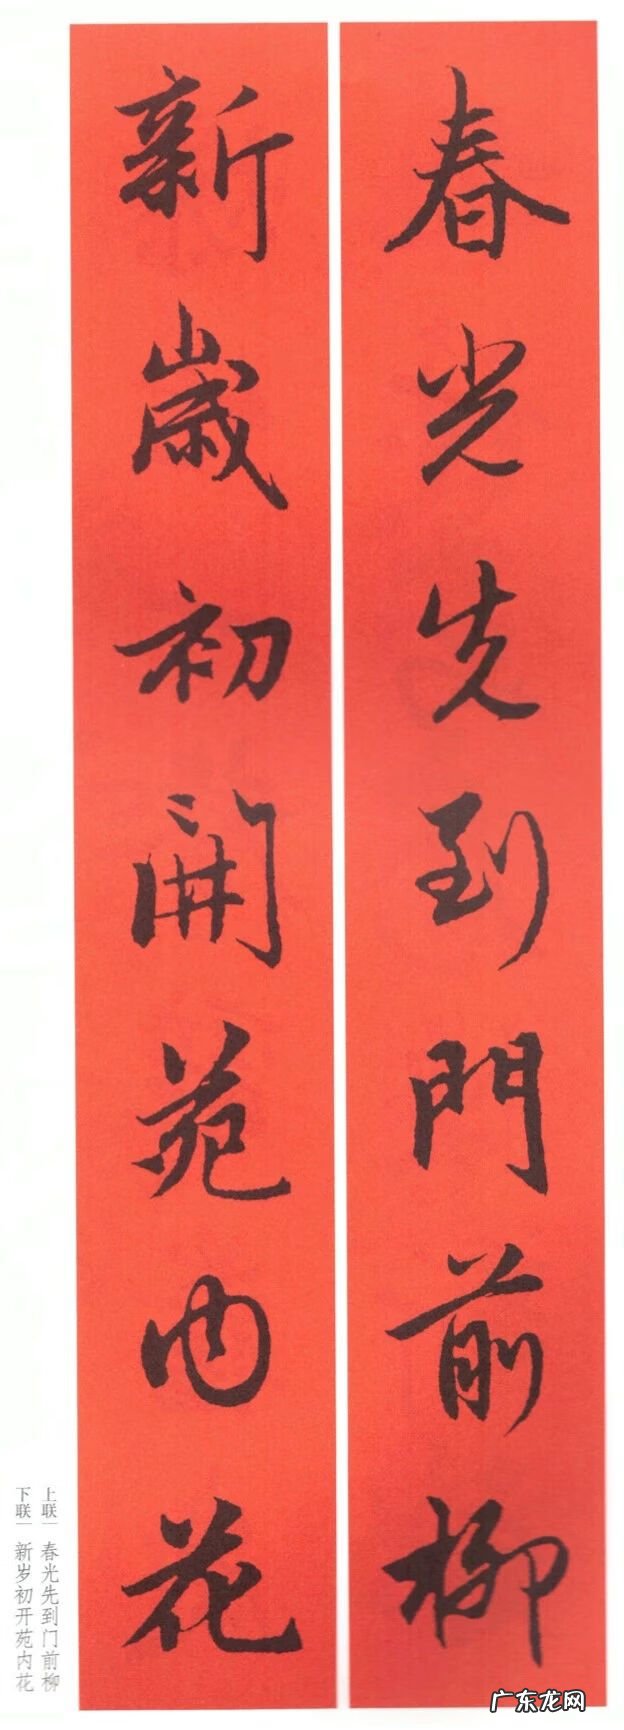 春光先到門前柳
新歲初開苑内花
上联 春光先到门前柳
下联 新岁初开苑内花
广东龙网